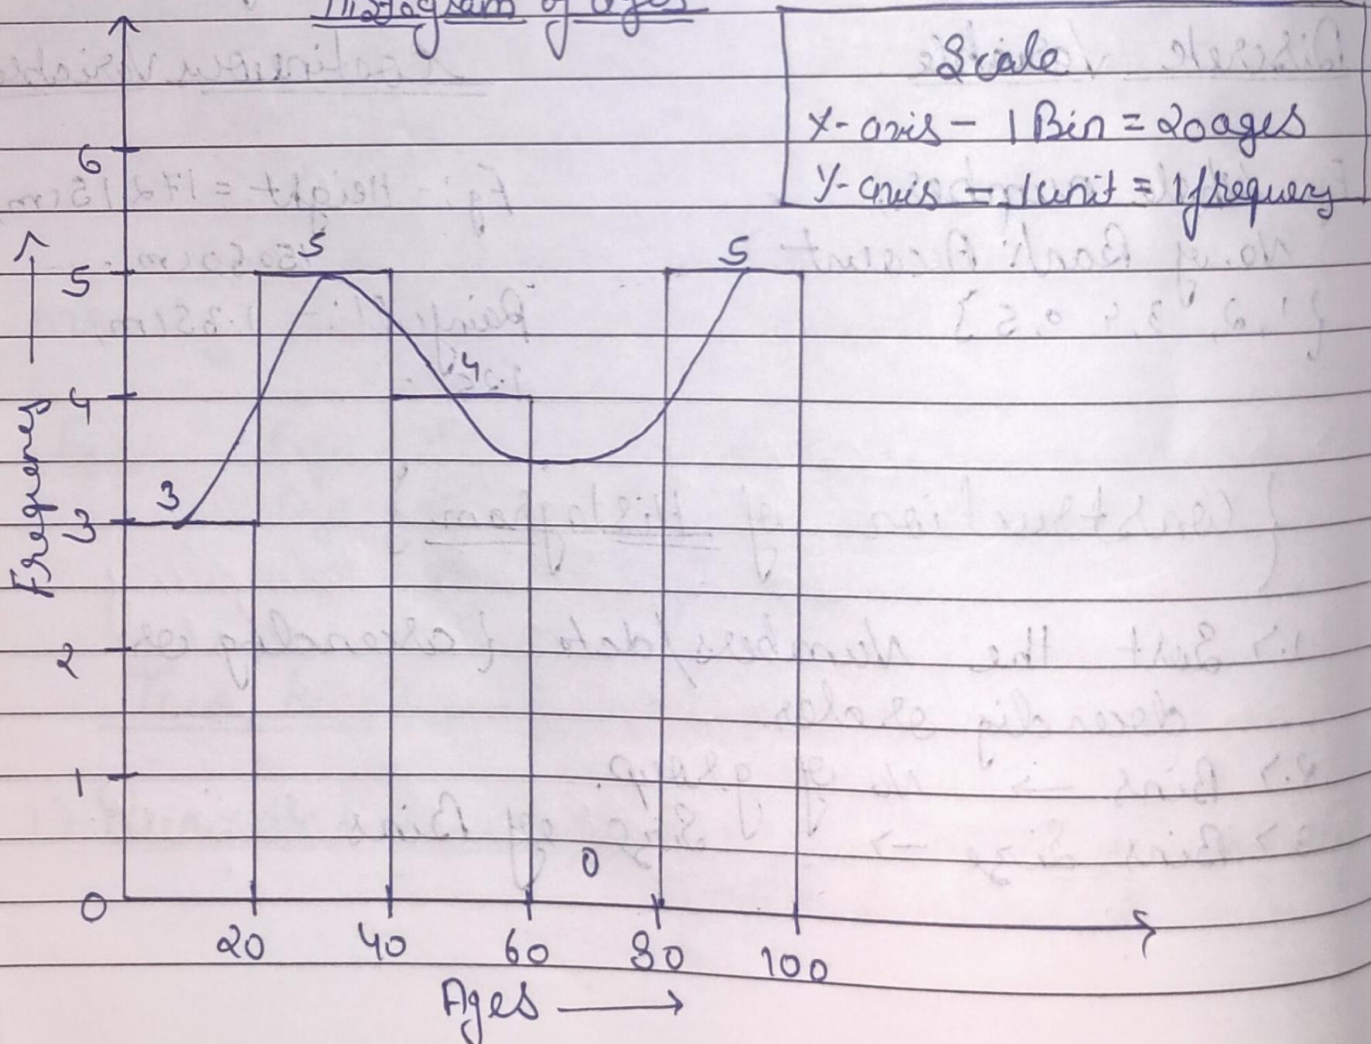 Histogram of Ages
Scale
X-axis - 1 Bin = 20 ages
Y-axis - 1 unit = 1 frequency
6
5
4
3
2
1
0
Frequency
3
5
4
0
5
20 40 60 80 100
Ages